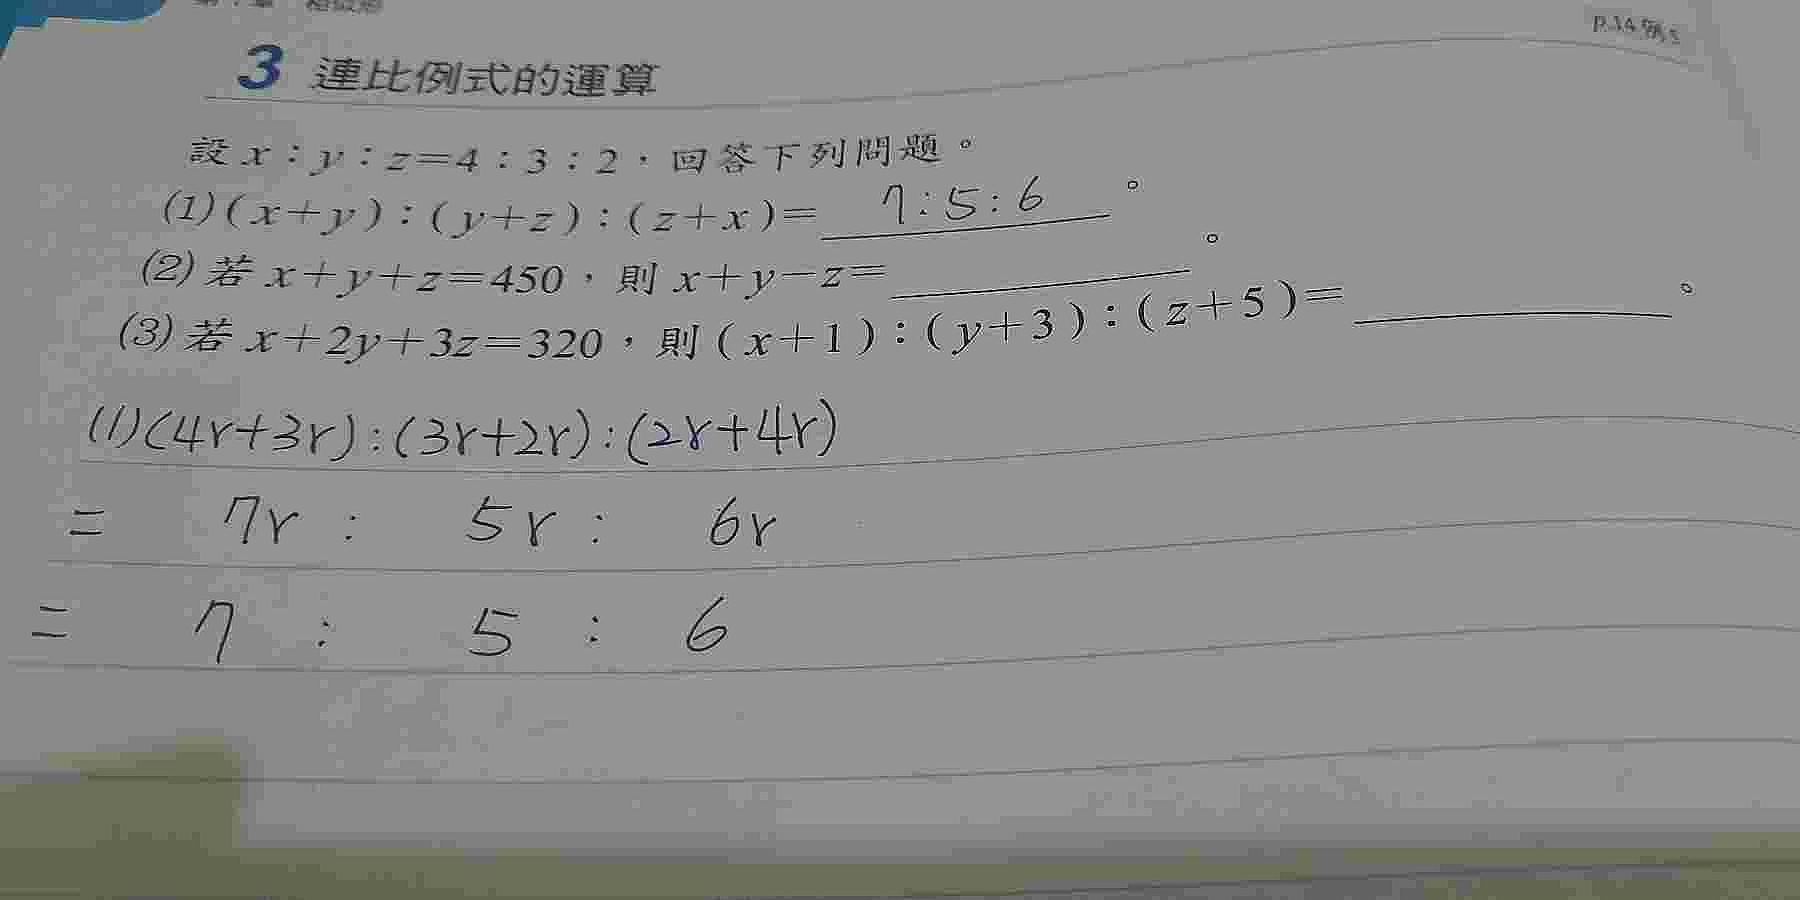 3 連比例式的運算
設 x：y：z＝4：3：2，回答下列問題。
(1)(x＋y)：(y＋z)：(z＋x)＝ 7:5:6 。
(2) 若 x＋y＋z＝450，則 x＋y－z＝ 。
(3) 若 x＋2y＋3z＝320，則 (x＋1)：(y＋3)：(z＋5)＝ 。
(1)(4r+3r):(3r+2r):(2r+4r)
= 7r : 5r : 6r
= 7 : 5 : 6